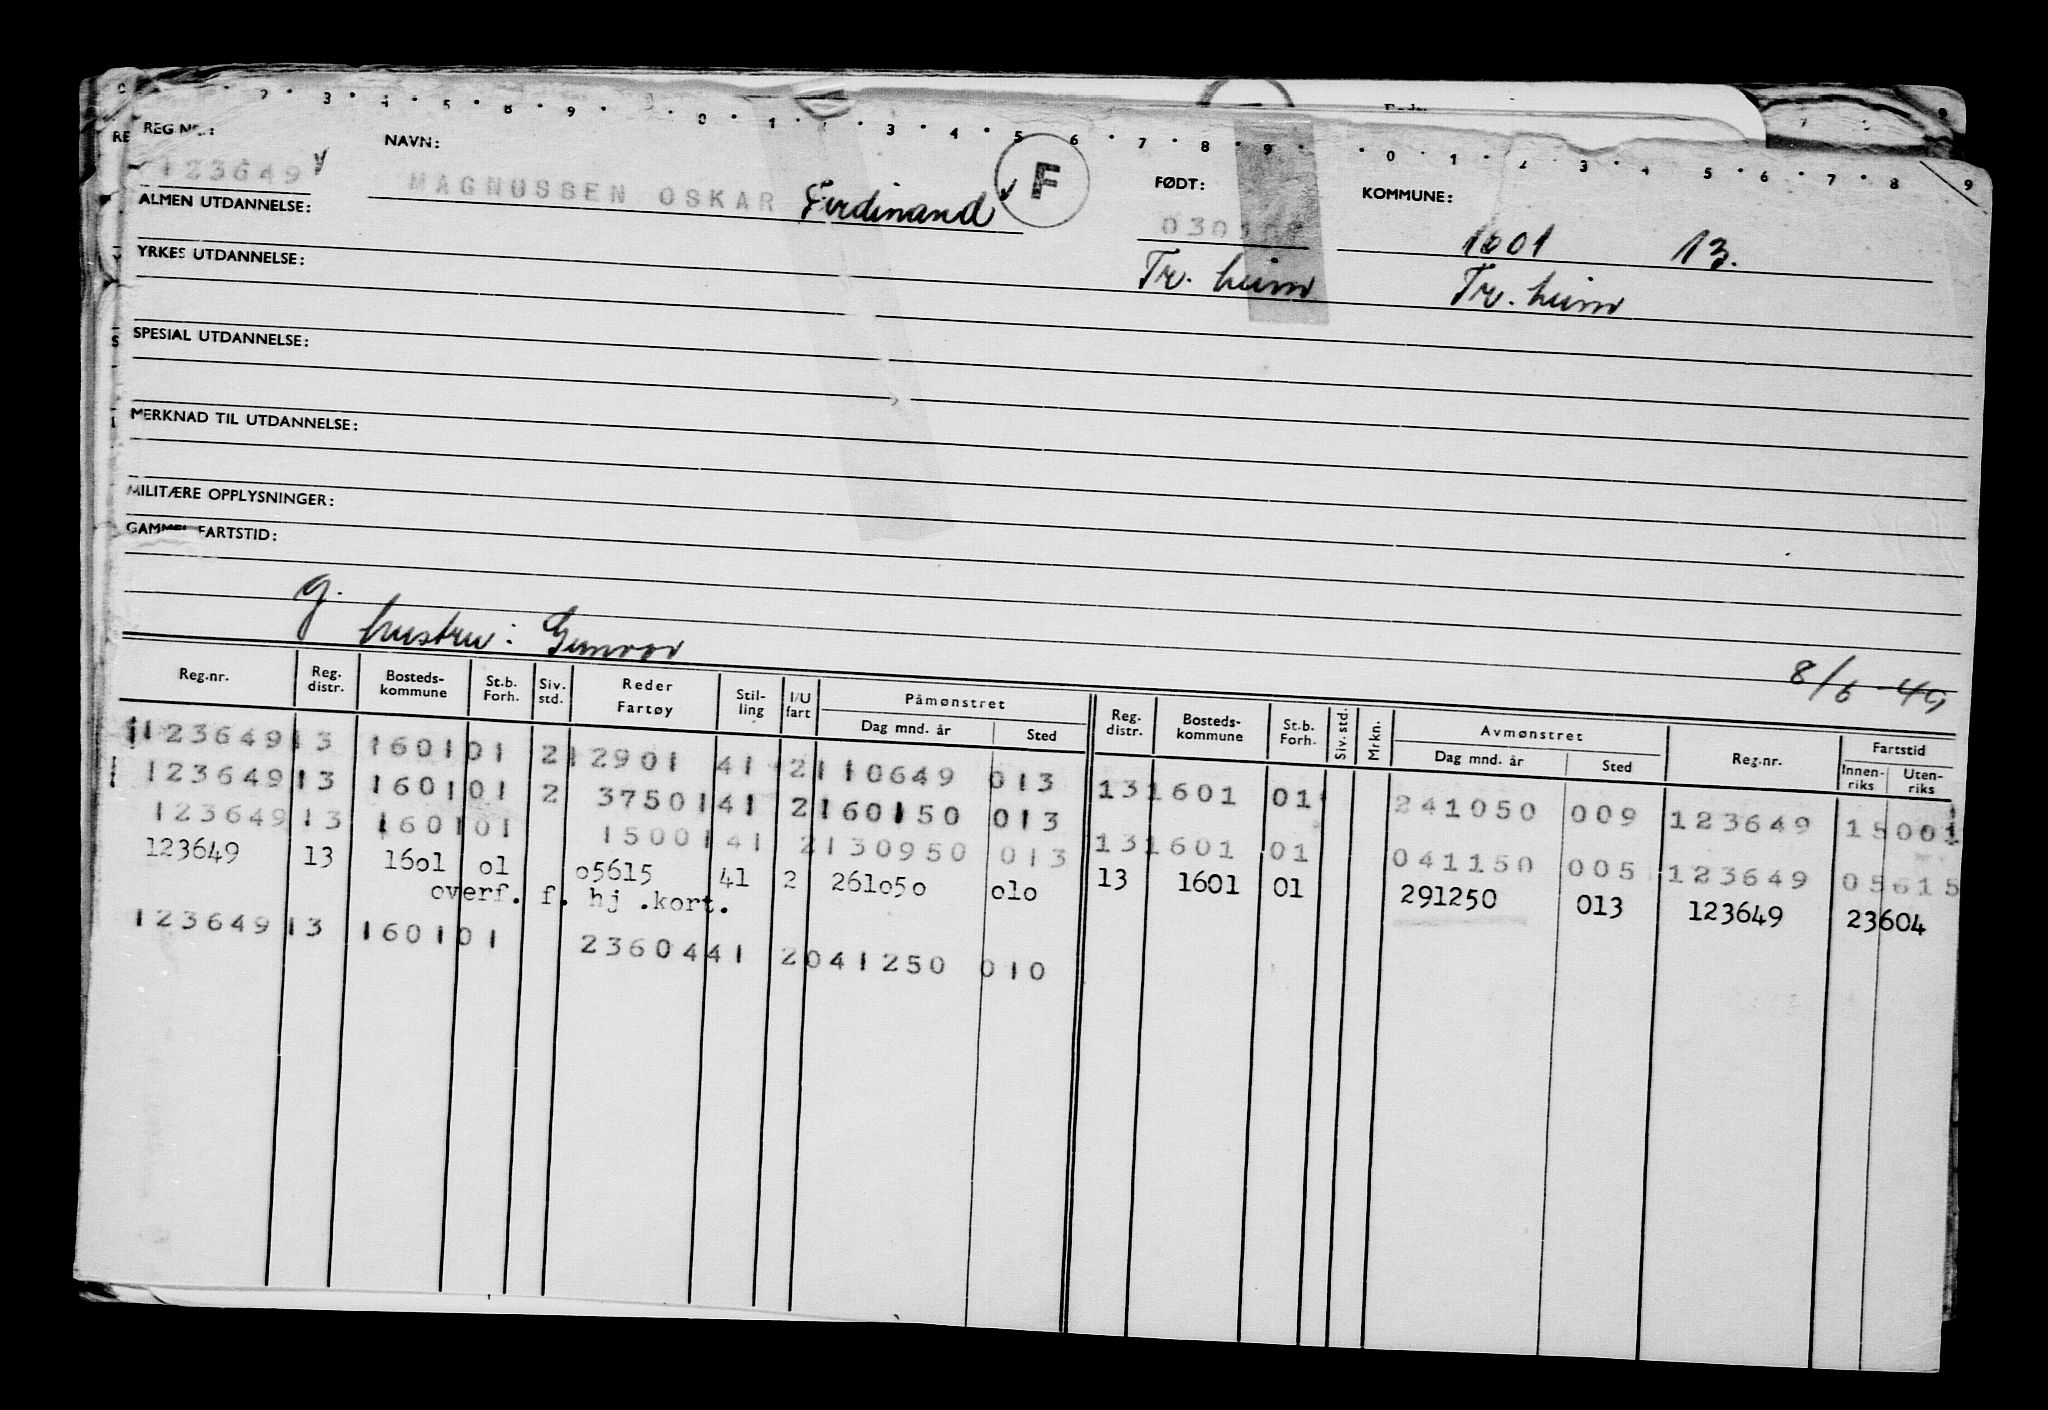 REG NR.: NAVN: F FØDT: KOMMUNE:
123649 MAGNUSSEN OSKAR Ferdinand 1601 13.
ALMEN UTDANNELSE: Tr. heim Tr. heim
YRKES UTDANNELSE:
SPESIAL UTDANNELSE:
MERKNAD TIL UTDANNELSE:
MILITÆRE OPPLYSNINGER:
GAMMEL FARTSTID:
g. hustru: Gunvor 8/6-49
Reg.nr. Reg. distr. Bosteds-kommune St.b. Forh. Siv. std. Reder Fartøy Stil-ling I/U fart Påmønstret Dag mnd. år Sted Reg. distr. Bosteds-kommune St.b. Forh. Siv. std. Mrkn. Avmønstret Dag mnd. år Sted Reg.nr. Fartstid Innen-riks Uten-riks
123649 13 1601 01 2 12901 41 2 110649 013 13 1601 01 241050 009 123649 15001
123649 13 1601 01 2 37501 41 2 160150 013 13 1601 01 041150 005 123649 05615
123649 13 1601 01 15001 41 2 130950 013 13 1601 01 291250 013 123649 23604
123649 13 16ol ol o5615 41 2 261o5o olo
overf. f. hj .kort.
123649 13 1601 01 23604 41 2 041250 010